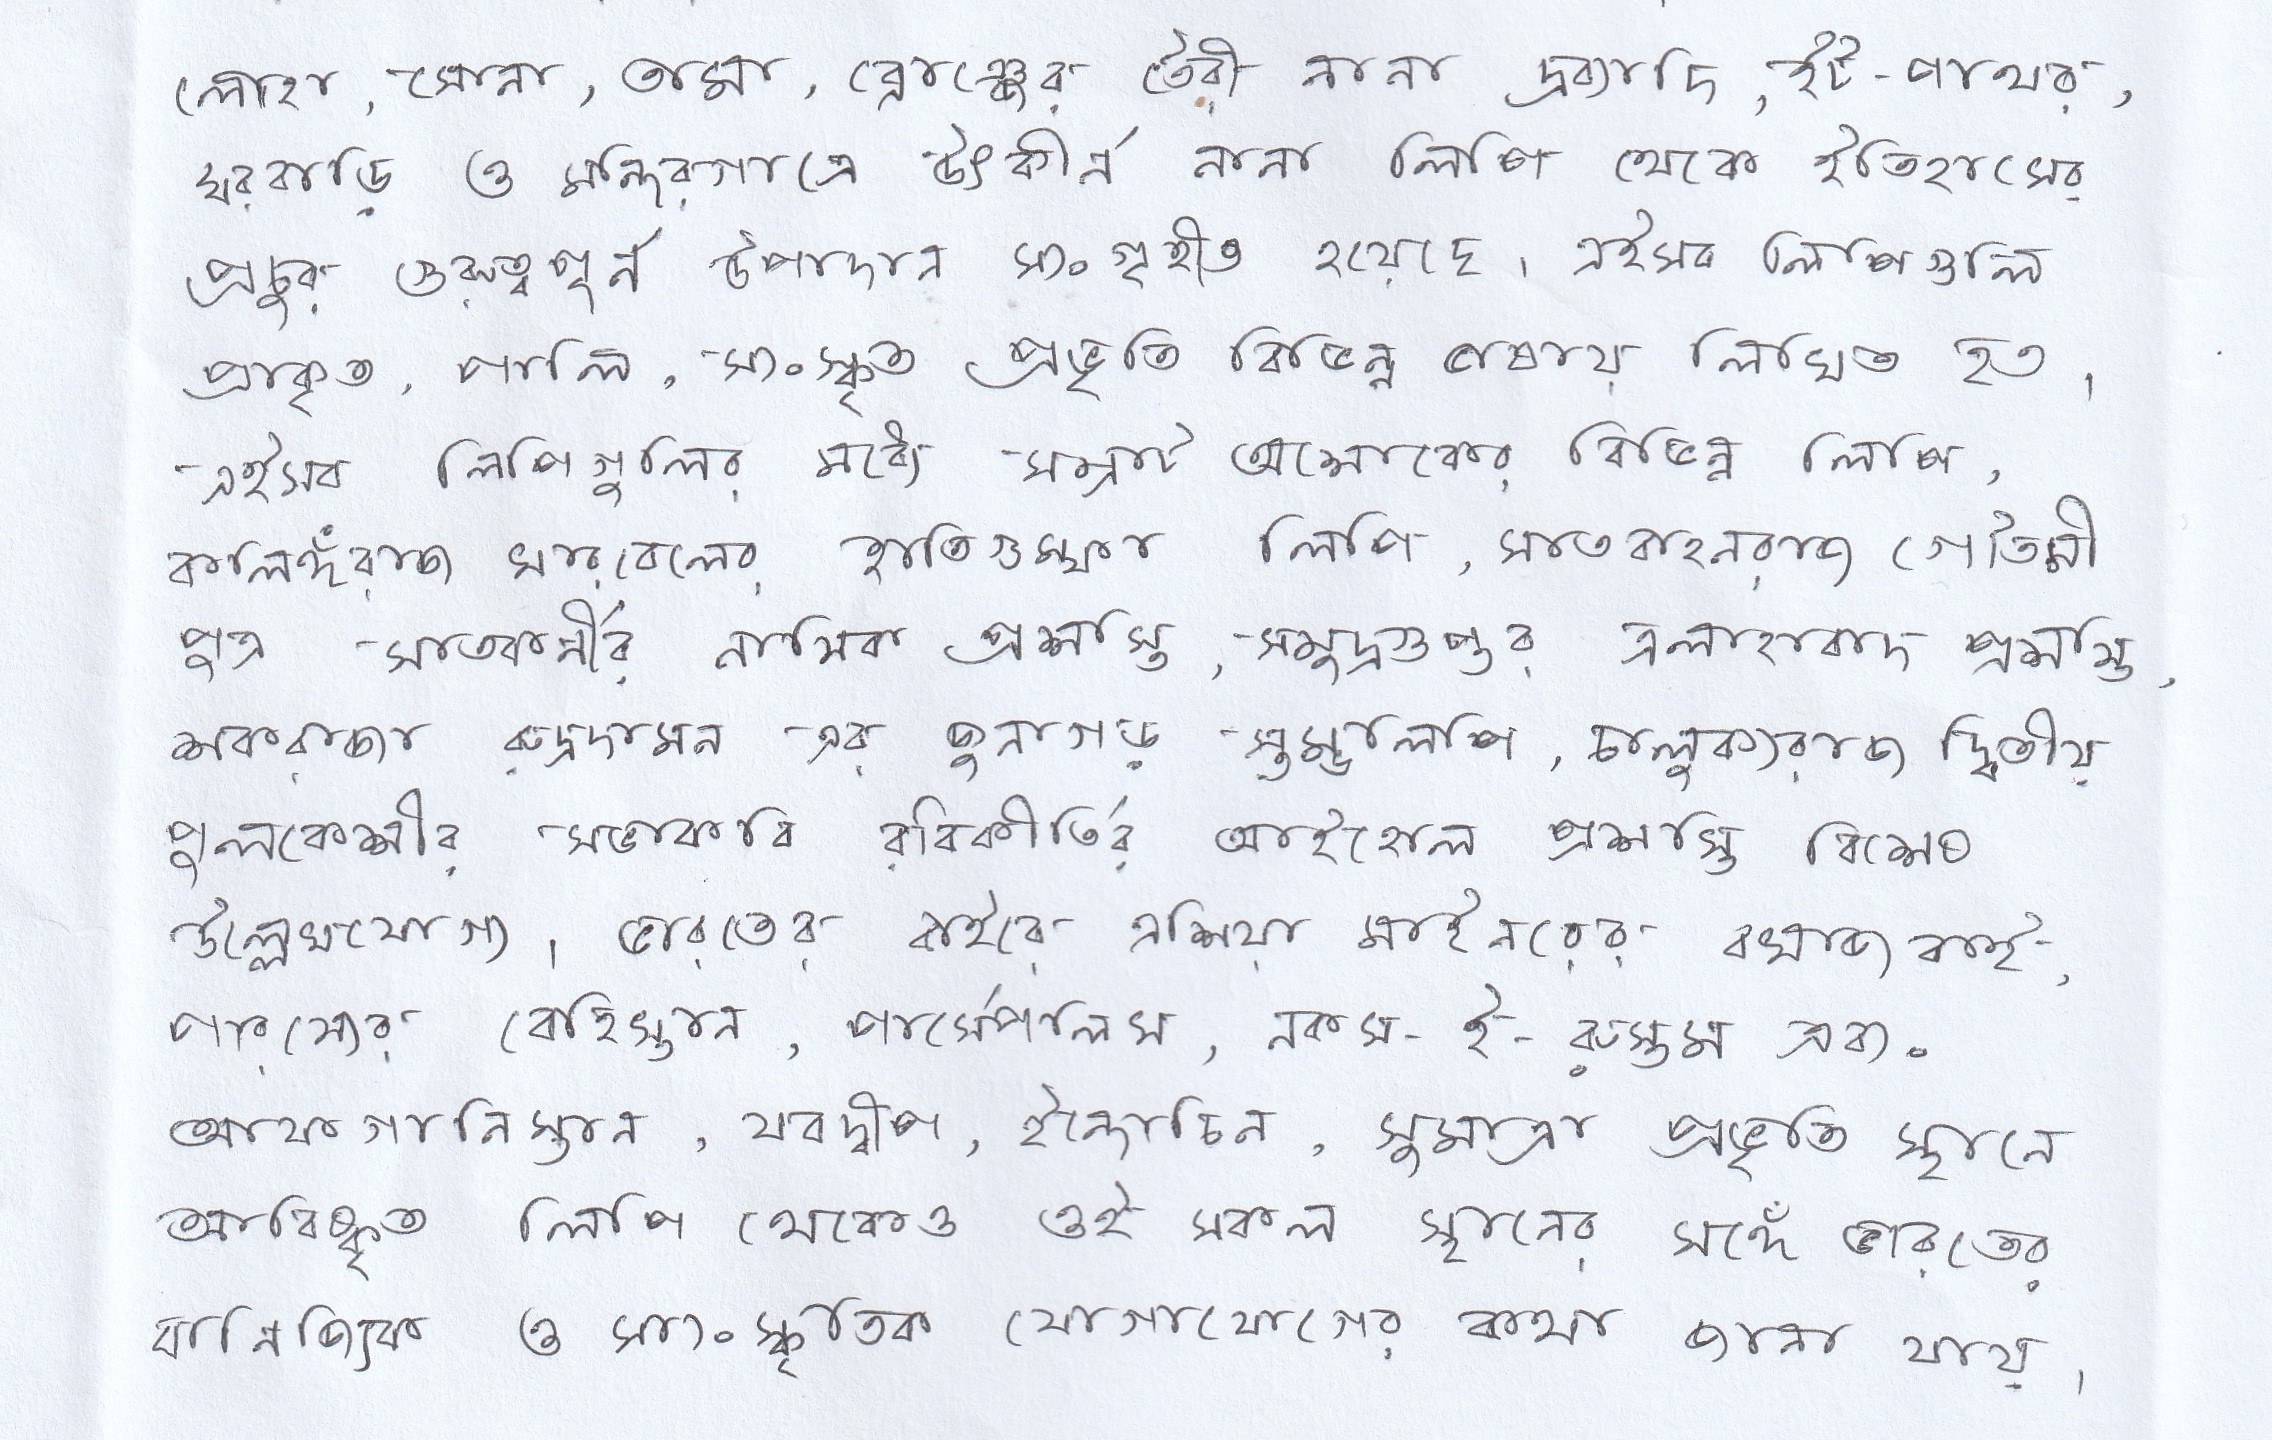 লোহা, সোনা, তামা, ব্রোঞ্জের তৈরী নানা দ্রব্যাদি, ইঁট-পাথর,
ঘরবাড়ি ও মন্দিরগাত্রে উৎকীর্ন নানা লিপি থেকে ইতিহাসের
প্রচুর গুরুত্বপূর্ন উপাদান সংগৃহীত হয়েছে। এইসব লিপিগুলি
প্রাকৃত, পালি, সংস্কৃত প্রভৃতি বিভিন্ন ভাষায় লিখিত হত।
এইসব লিপিগুলির মধ্যে সম্রাট অশোকের বিভিন্ন লিপি,
কলিঙ্গরাজ খারবেলের হাতিগুম্ফা লিপি, সাতবাহনরাজ গৌতমী
পুত্র সাতকর্নীর নাসিক প্রশস্তি, সমুদ্রগুপ্তর এলাহাবাদ প্রশস্তি,
শকরাজা রুদ্রদামন এর জুনাগড় স্তম্ভলিপি, চালুক্যরাজ দ্বিতীয়
পুলকেশীর সভাকবি রবিকীর্তির আইহোল প্রশস্তি বিশেষ
উল্লেখযোগ্য। ভারতের বাইরে এশিয়া মাইনরের বঘাজকাই,
পারস্যের বেহিস্তান, পার্সেপলিস, নকস-ই-রুস্তম এবং
আফগানিস্তান, যবদ্বীপ, ইন্দোচিন, সুমাত্রা প্রভৃতি স্থানে
আবিষ্কৃত লিপি থেকেও ওই সকল স্থানের সঙ্গে ভারতের
বানিজ্যিক ও সাংস্কৃতিক যোগাযোগের কথা জানা যায়।